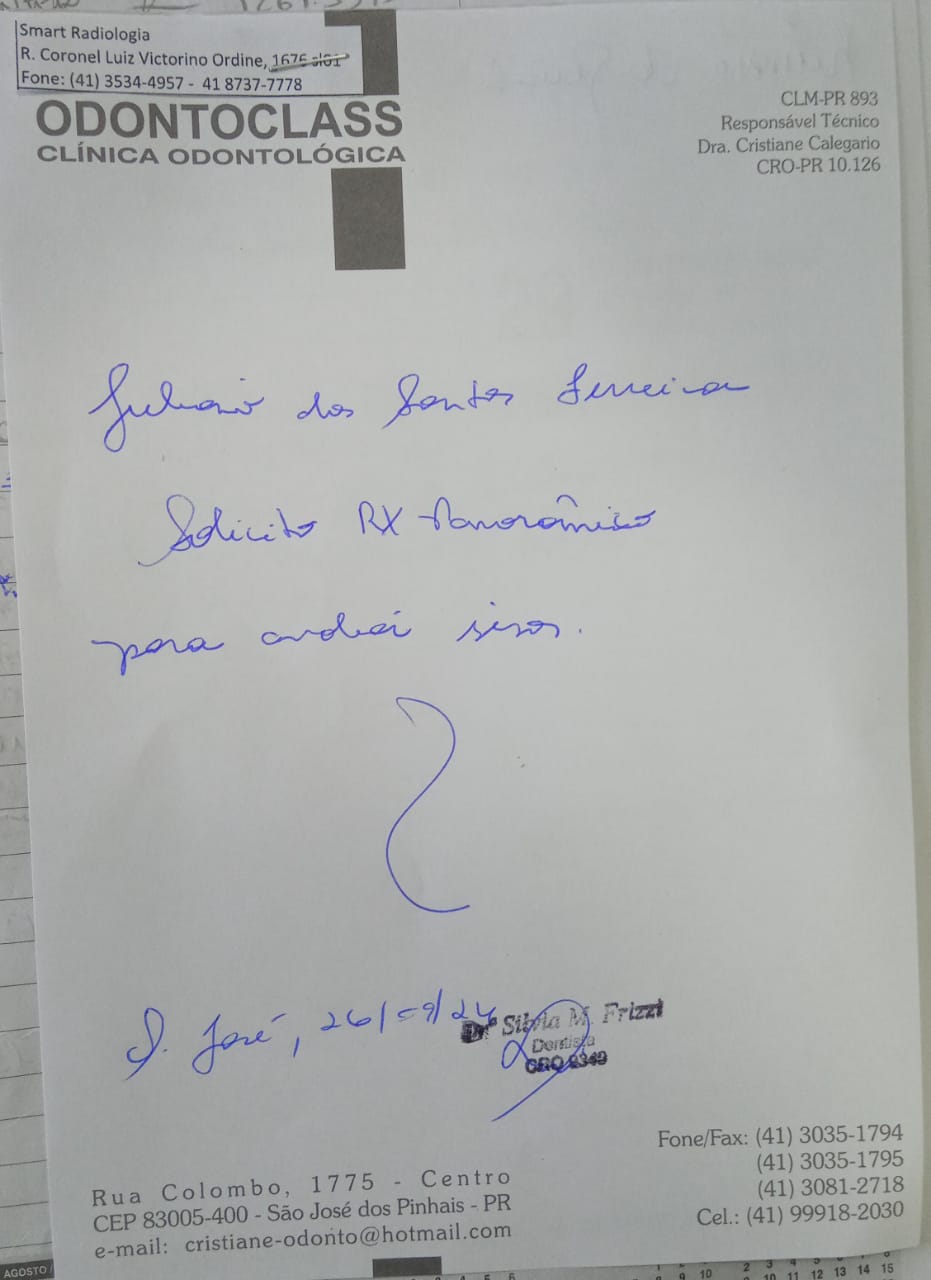 Smart Radiologia
R. Coronel Luiz Victorino Ordine, 1676 sl01
Fone: (41) 3534-4957 - 41 8737-7778
ODONTOCLASS
CLÍNICA ODONTOLÓGICA
CLM-PR 893
Responsável Técnico
Dra. Cristiane Calegario
CRO-PR 10.126
dos Santos Ferreira
Solicito RX Panorâmico
para avaliar sisos.
S. José, 26/09/24
Drª Silvia M. Frizzi
Dentista
CRO 9349
Rua Colombo, 1775 - Centro
CEP 83005-400 - São José dos Pinhais - PR
e-mail: cristiane-odonto@hotmail.com
Fone/Fax: (41) 3035-1794
(41) 3035-1795
(41) 3081-2718
Cel.: (41) 99918-2030
AGOSTO